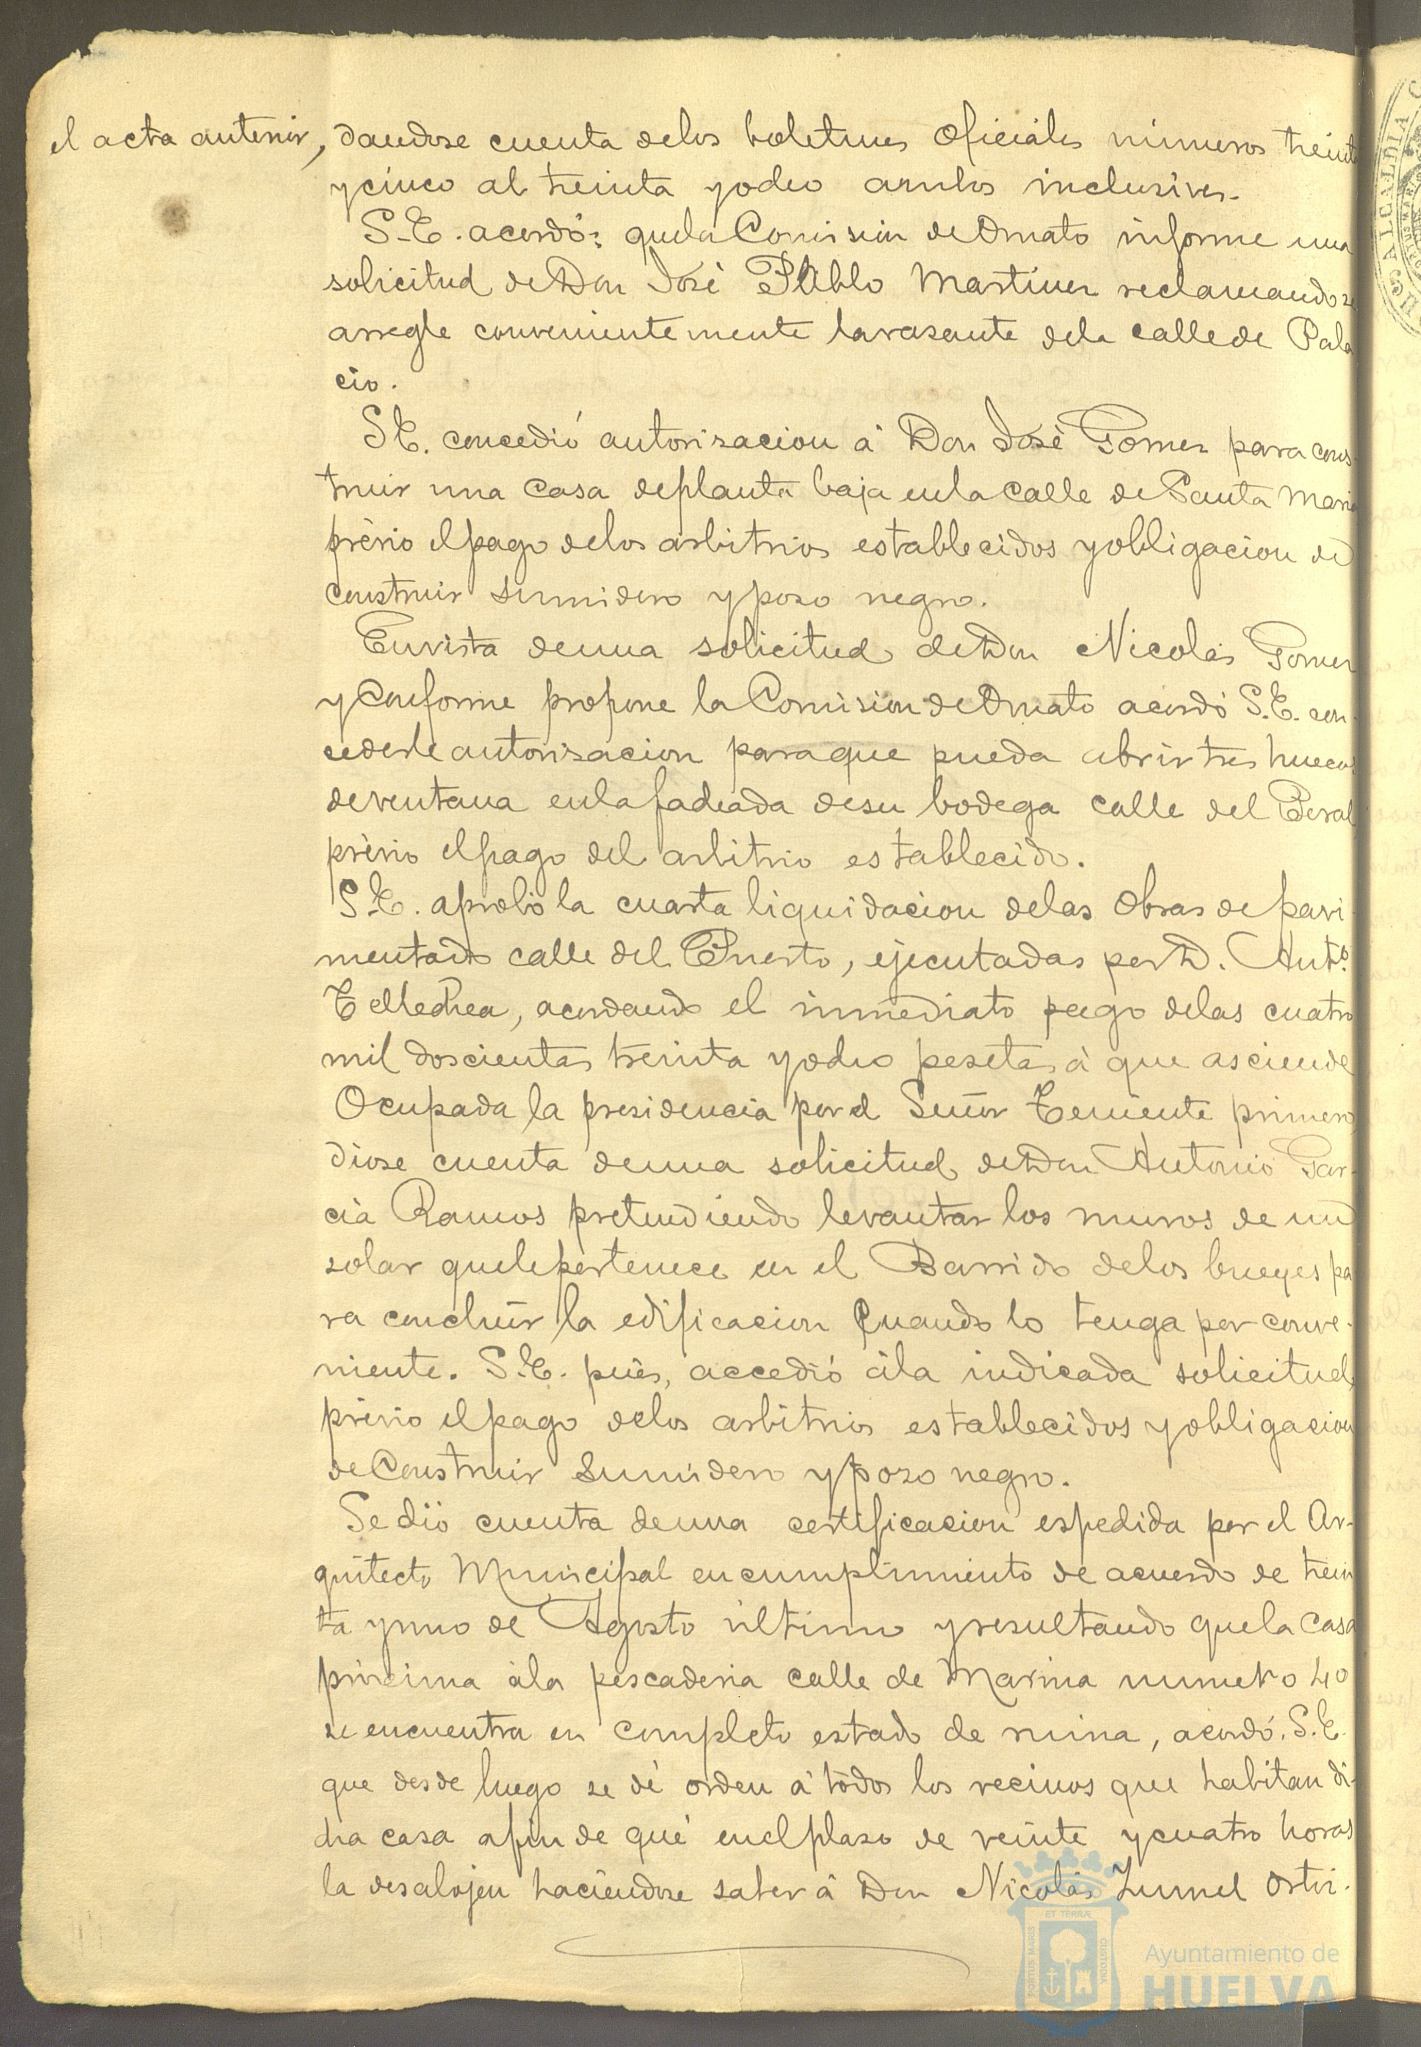 el acta anterior, dandose cuenta delos boletines oficiales números treinta
y cinco al treinta y ocho ambos inclusives.
S.E. acordó: que la Comision de Ornato informe una
solicitud de Don José Pablo Martinez reclamando se
arregle convenientemente la rasante dela calle de Pala
cio.
S.E. concedió autorisacion á Don José Gomez para cons-
truir una casa de planta baja en la calle de Santa Maria
prévio el pago delos arbitrios establecidos y obligacion de
construir sumidero y poso negro.
En vista de una solicitud de Don Nicolás Gomez
y conforme propone la Comision de Ornato acordó S.E. con-
cederle autorisacion para que pueda abrir tres huecos
de ventana en la fachada de su bodega calle del Peral
prévio el pago del arbitrio establecido.
S.E. aprobó la cuarta liquidacion delas obras de pavi
mentado calle del Puerto, ejecutadas por D. Antº
Tellechea, acordando el inmediato pago delas cuatro
mil doscientas treinta y ocho pesetas á que asciende
Ocupada la presidencia por el Señor Teniente primero
diose cuenta de una solicitud de Don Antonio Gar-
cia Ramos pretendiendo levantar los muros de un
solar que le pertenece en el Barrido delos bueyes pa
ra concluir la edificacion cuando lo tenga por conve-
niente. S.E. pués, accedió á la indicada solicitud,
prévio el pago delos arbitrios establecidos y obligacion
de construir sumidero y poso negro.
Se dió cuenta de una certificacion espedida por el Ar-
quitecto Municipal en cumplimiento de acuerdo de trein
ta y uno de Agosto último y resultando que la casa
prócsima á la pescaderia calle de Marina numero 40
se encuentra en completo estado de ruina, acordó S.E.
que desde luego se dé orden á todos los vecinos que habitan di-
cha casa afin de qué en el plaso de veinte y cuatro horas
la desalojen haciéndose saber á Don Nicolás Zumel Ortiz.
PORTUS MARIS
ET TERRÆ
CUSTODIA
Ayuntamiento de
HUELVA
ALCALDIA